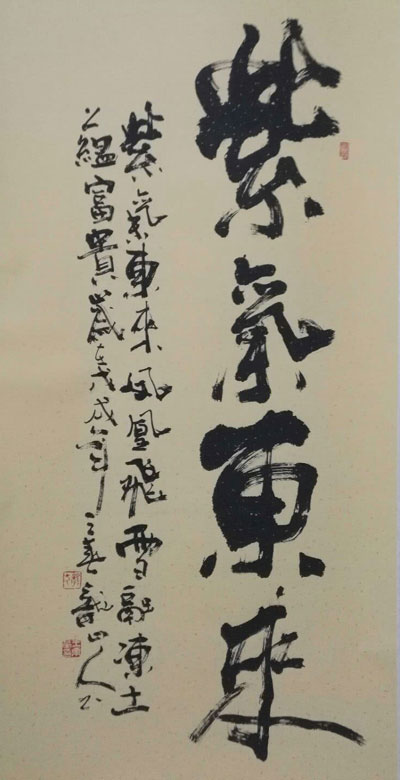 紫氣東來
紫氣東來鳳凰飛雪融凍土
蘊富貴歲戊戌年之春龍山人